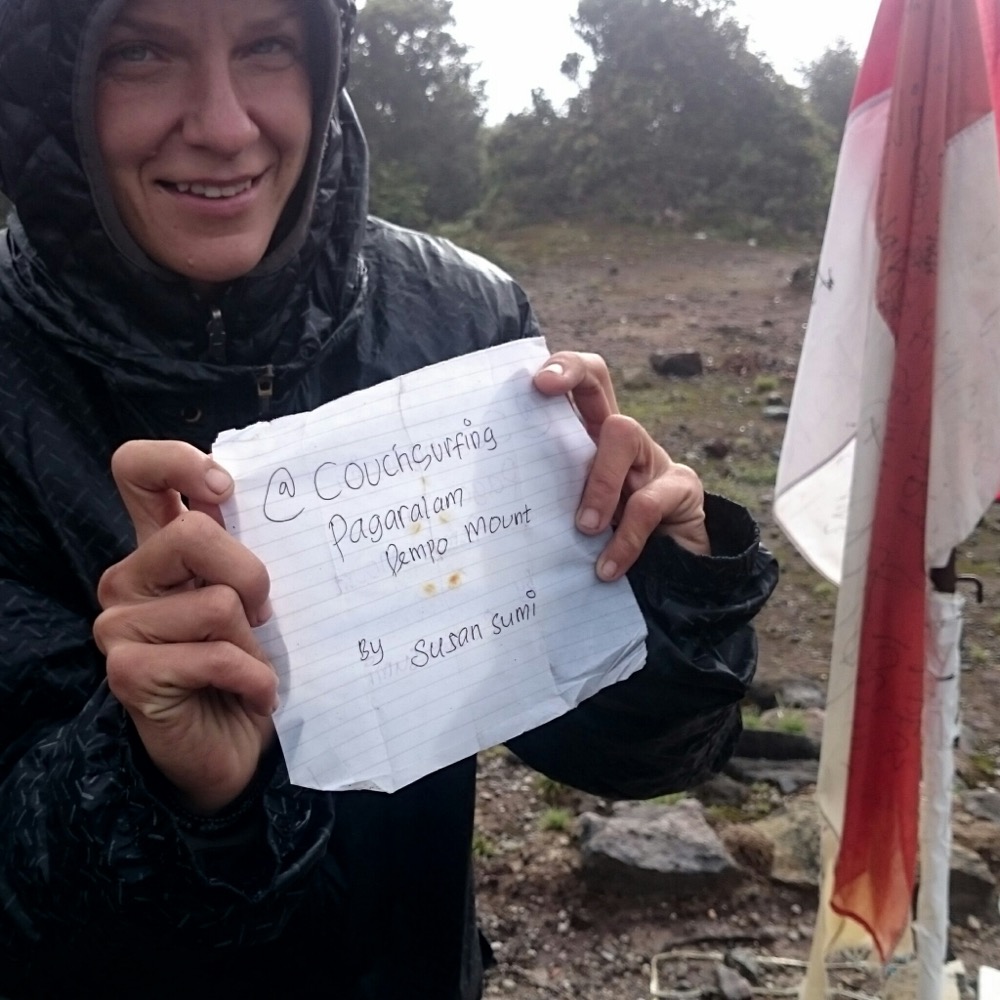 @ Couchsurfing
Pagaralam
Dempo Mount
By Susan Sumi